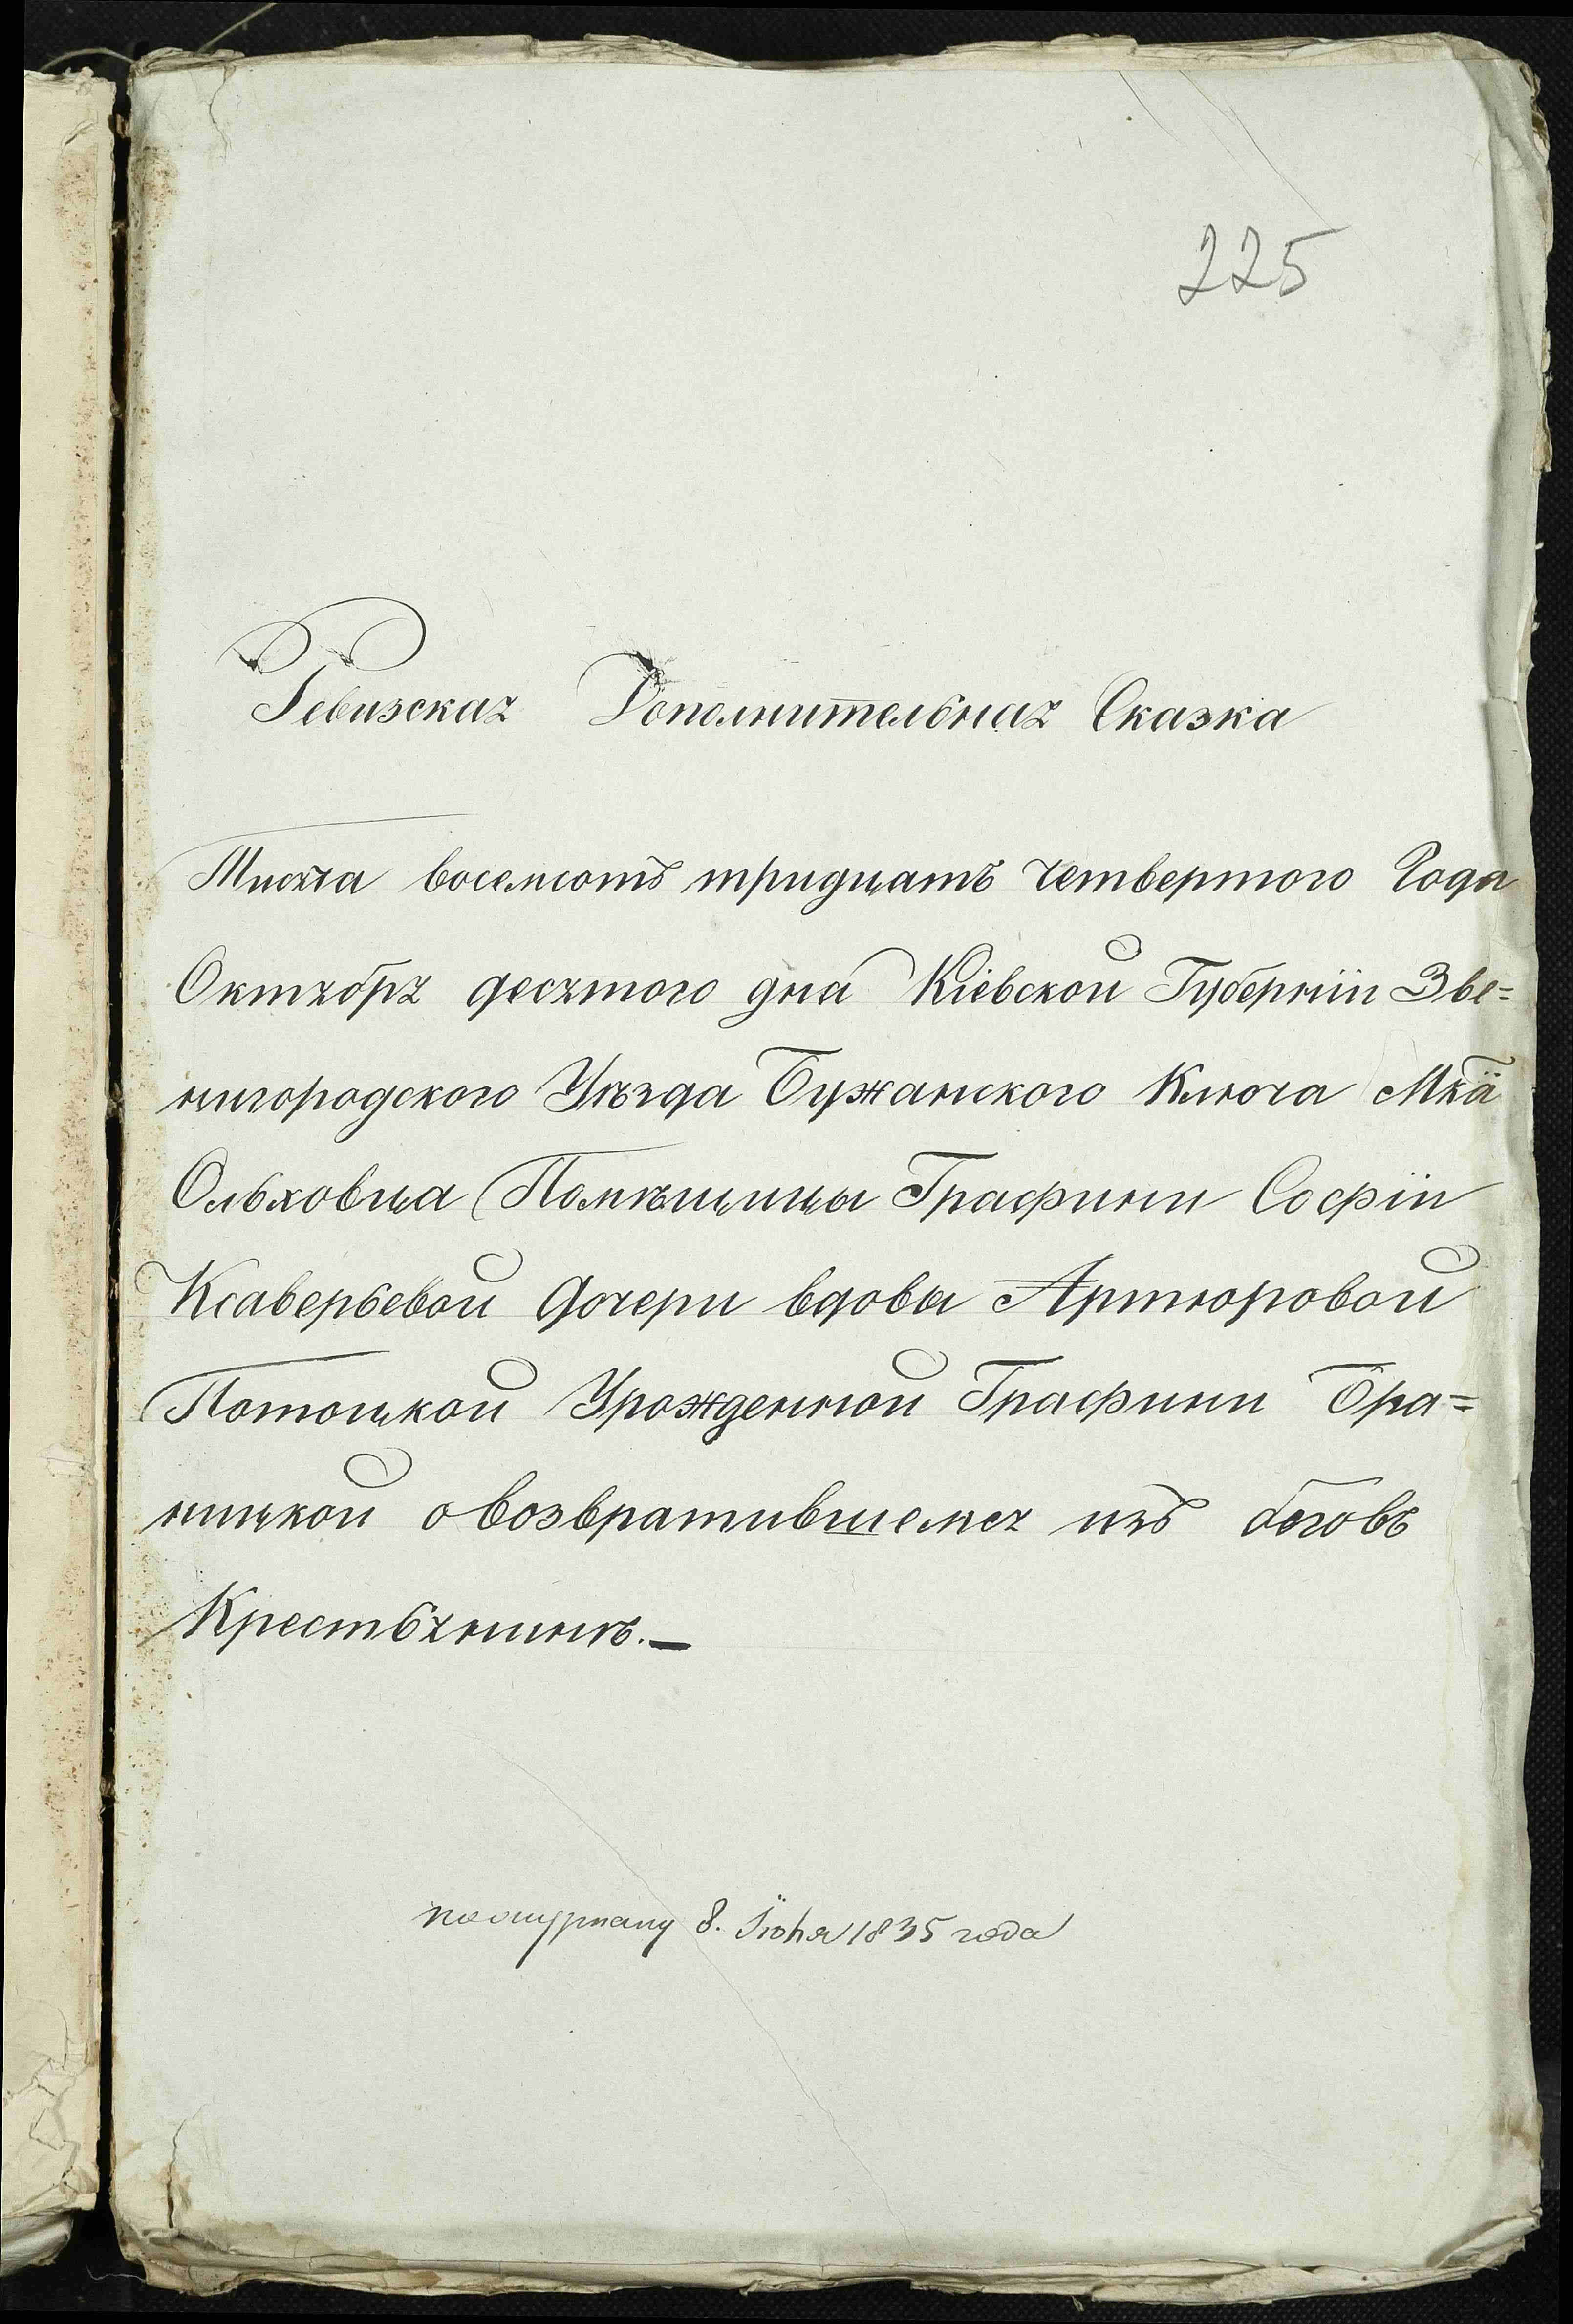 225
Ревизская Дополнительная Сказка
Тысяча восемсотъ тридцать четвертого Года
Октября десятого дня Кіевской Губерніи Зве=
нигородского Уѣзда Бужанского Ключа Мка
Ольховца Помѣщицы Графини Софіи
Ксаверьевой дочери вдовы Артюровой
Потоцкой Урожденной Графини Бра=
ницкой о возвратившемся изъ беговъ
Крестьянинѣ.—
8. Іюня 1835 года